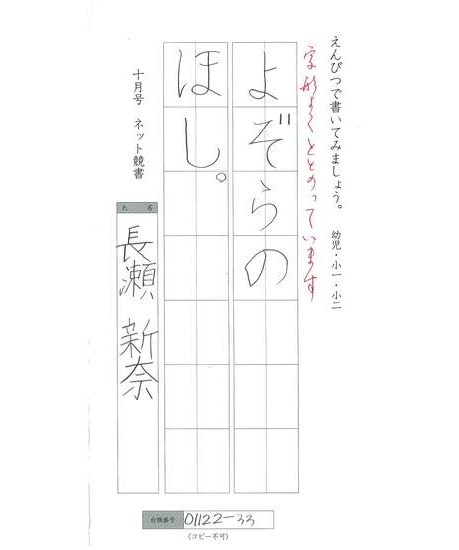 えんぴつで書いてみましょう。 幼児・小一・小二
字形よくととのっています
よぞらの
ほし。
十月号 ネット競書
氏名
長瀬 新奈
台帳番号 01122-33
(コピー不可)